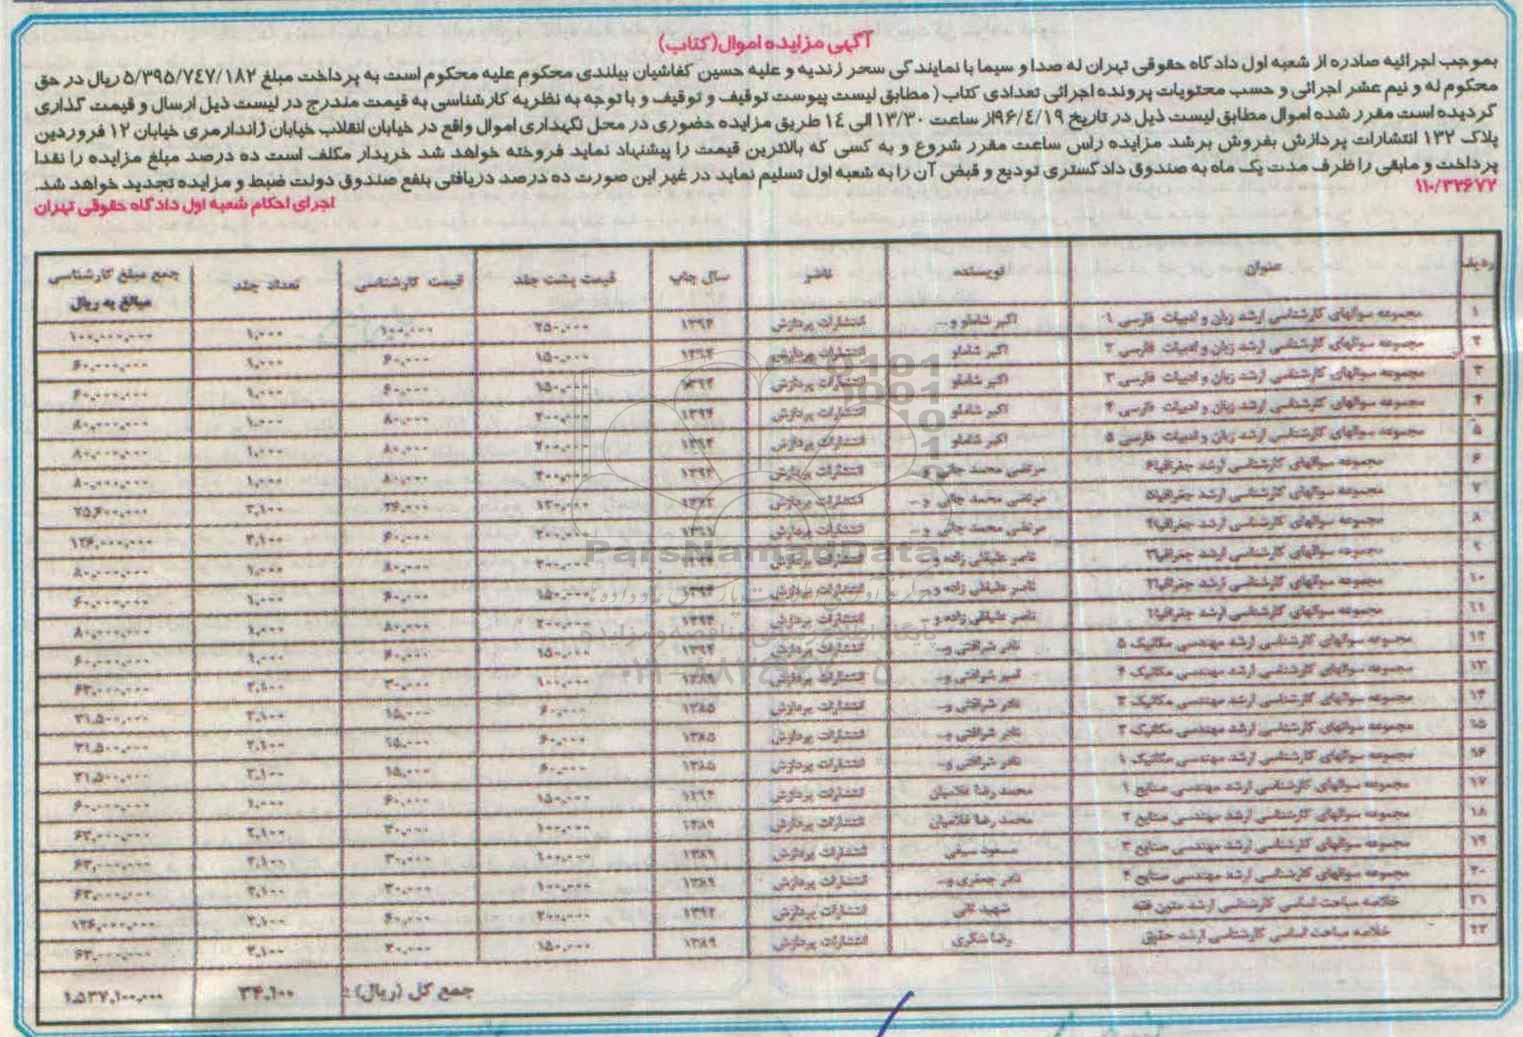 آگهی مزایده اموال(کتاب)
بموجب اجرائیه صادره از شعبه اول دادگاه حقوقی تهران له صدا و سیما با نمایندگی سحر زندیه و علیه حسین کفاشیان بیلندی محکوم علیه محکوم است به پرداخت مبلغ ۵/۳۹۵/۷۴۷/۱۸۲ ریال در حق
محکوم له و نیم عشر اجرائی و حسب محتویات پرونده اجرائی تعدادی کتاب ( مطابق لیست پیوست توقیف و توقیف و با توجه به نظریه کارشناسی به قیمت مندرج در لیست ذیل ارسال و قیمت گذاری
گردیده است مقرر شده اموال مطابق لیست ذیل در تاریخ ۹۶/۴/۱۹از ساعت ۱۳/۳۰ الی ۱۴ طریق مزایده حضوری در محل نگهداری اموال واقع در خیابان انقلاب خیابان ژاندارمری خیابان ۱۲ فروردین
پلاک ۱۳۲ انتشارات پردازش بفروش برشد مزایده راس ساعت مقرر شروع و به کسی که بالاترین قیمت را پیشنهاد نماید فروخته خواهد شد خریدار مکلف است ده درصد مبلغ مزایده را نقدا
پرداخت و مابقی را ظرف مدت یک ماه به صندوق دادگستری تودیع و قبض آن را به شعبه اول تسلیم نماید در غیر این صورت ده درصد دریافتی بنفع صندوق دولت ضبط و مزایده تجدید خواهد شد.
۱۱۰/۳۲۶۷۲ اجرای احکام شعبه اول دادگاه حقوقی تهران
ردیف عنوان نویسنده ناشر سال چاپ قیمت پشت جلد قیمت کارشناسی تعداد جلد جمع مبلغ کارشناسی مبالغ به ریال
۱ مجموعه سوالهای کارشناسی ارشد زبان و ادبیات فارسی ۱ اکبر شاملو و... انتشارات پردازش ۱۳۹۴ ۲۵۰,۰۰۰ ۱۰۰,۰۰۰ ۱,۰۰۰ ۱۰۰,۰۰۰,۰۰۰
۲ مجموعه سوالهای کارشناسی ارشد زبان و ادبیات فارسی ۲ اکبر شاملو انتشارات پردازش ۱۳۹۴ ۱۵۰,۰۰۰ ۶۰,۰۰۰ ۱,۰۰۰ ۶۰,۰۰۰,۰۰۰
۳ مجموعه سوالهای کارشناسی ارشد زبان و ادبیات فارسی ۳ اکبر شاملو انتشارات پردازش ۱۵۰,۰۰۰ ۶۰,۰۰۰ ۱,۰۰۰ ۶۰,۰۰۰,۰۰۰
۴ مجموعه سوالهای کارشناسی ارشد زبان و ادبیات فارسی ۴ اکبر شاملو انتشارات پردازش ۱۳۹۴ ۲۰۰,۰۰۰ ۸۰,۰۰۰ ۱,۰۰۰ ۸۰,۰۰۰,۰۰۰
۵ مجموعه سوالهای کارشناسی ارشد زبان و ادبیات فارسی ۵ اکبر شاملو انتشارات پردازش ۱۳۹۴ ۲۰۰,۰۰۰ ۸۰,۰۰۰ ۱,۰۰۰ ۸۰,۰۰۰,۰۰۰
۶ مجموعه سوالهای کارشناسی ارشد جغرافیا۶ مرتضی محمد جانی و... انتشارات پردازش ۱۳۹۴ ۲۰۰,۰۰۰ ۸۰,۰۰۰ ۱,۰۰۰ ۸۰,۰۰۰,۰۰۰
۷ مجموعه سوالهای کارشناسی ارشد جغرافیا۵ مرتضی محمد جانی و... انتشارات پردازش ۱۲۰,۰۰۰ ۳۶,۰۰۰ ۲,۱۰۰ ۷۵,۶۰۰,۰۰۰
۸ مجموعه سوالهای کارشناسی ارشد جغرافیا۴ مرتضی محمد جانی و... انتشارات پردازش ۱۳۹۱ ۲۰۰,۰۰۰ ۶۰,۰۰۰ ۲,۱۰۰ ۱۲۶,۰۰۰,۰۰۰
۹ مجموعه سوالهای کارشناسی ارشد جغرافیا۳ ناصر علیقلی زاده و انتشارات پردازش ۲۰۰,۰۰۰ ۸۰,۰۰۰ ۱,۰۰۰ ۸۰,۰۰۰,۰۰۰
۱۰ مجموعه سوالهای کارشناسی ارشد جغرافیا۲ ناصر علیقلی زاده و انتشارات پردازش ۱۳۹۴ ۱۵۰,۰۰۰ ۶۰,۰۰۰ ۱,۰۰۰ ۶۰,۰۰۰,۰۰۰
۱۱ مجموعه سوالهای کارشناسی ارشد جغرافیا۱ ناصر علیقلی زاده و... انتشارات پردازش ۱۳۹۴ ۲۰۰,۰۰۰ ۸۰,۰۰۰ ۱,۰۰۰ ۸۰,۰۰۰,۰۰۰
۱۲ مجموعه سوالهای کارشناسی ارشد مهندسی مکانیک ۵ نادر شرافتی و... انتشارات پردازش ۱۳۹۴ ۱۵۰,۰۰۰ ۶۰,۰۰۰ ۱,۰۰۰ ۶۰,۰۰۰,۰۰۰
۱۳ مجموعه سوالهای کارشناسی ارشد مهندسی مکانیک ۴ شرافتی و... انتشارات پردازش ۱۳۸۹ ۱۰۰,۰۰۰ ۳۰,۰۰۰ ۲,۱۰۰ ۶۳,۰۰۰,۰۰۰
۱۴ مجموعه سوالهای کارشناسی ارشد مهندسی مکانیک ۳ نادر شرافتی و... انتشارات پردازش ۱۳۸۵ ۶۰,۰۰۰ ۱۵,۰۰۰ ۲,۱۰۰ ۳۱,۵۰۰,۰۰۰
۱۵ مجموعه سوالهای کارشناسی ارشد مهندسی مکانیک ۲ نادر شرافتی و... انتشارات پردازش ۱۳۸۵ ۶۰,۰۰۰ ۱۵,۰۰۰ ۲,۱۰۰ ۳۱,۵۰۰,۰۰۰
۱۶ مجموعه سوالهای کارشناسی ارشد مهندسی مکانیک ۱ نادر شرافتی و... انتشارات پردازش ۱۳۸۵ ۶۰,۰۰۰ ۱۵,۰۰۰ ۲,۱۰۰ ۳۱,۵۰۰,۰۰۰
۱۷ مجموعه سوالهای کارشناسی ارشد مهندسی صنایع ۱ محمد رضا غلامیان انتشارات پردازش ۱۳۹۴ ۱۵۰,۰۰۰ ۶۰,۰۰۰ ۱,۰۰۰ ۶۰,۰۰۰,۰۰۰
۱۸ مجموعه سوالهای کارشناسی ارشد مهندسی صنایع ۲ محمد رضا غلامیان انتشارات پردازش ۱۳۸۹ ۱۰۰,۰۰۰ ۳۰,۰۰۰ ۲,۱۰۰ ۶۳,۰۰۰,۰۰۰
۱۹ مجموعه سوالهای کارشناسی ارشد مهندسی صنایع ۳ مسعود سیفی انتشارات پردازش ۱۳۸۹ ۱۰۰,۰۰۰ ۳۰,۰۰۰ ۲,۱۰۰ ۶۳,۰۰۰,۰۰۰
۲۰ مجموعه سوالهای کارشناسی ارشد مهندسی صنایع ۴ نادر جعفری و... انتشارات پردازش ۱۳۸۹ ۱۰۰,۰۰۰ ۳۰,۰۰۰ ۲,۱۰۰ ۶۳,۰۰۰,۰۰۰
۲۱ خلاصه مباحث اساسی کارشناسی ارشد متون فقه شهید ثانی انتشارات پردازش ۱۳۹۲ ۲۰۰,۰۰۰ ۶۰,۰۰۰ ۲,۱۰۰ ۱۲۶,۰۰۰,۰۰۰
۲۲ خلاصه مباحث اساسی کارشناسی ارشد حقوق رضا شکری انتشارات پردازش ۱۳۸۹ ۱۵۰,۰۰۰ ۳۰,۰۰۰ ۲,۱۰۰ ۶۳,۰۰۰,۰۰۰
جمع کل (ریال): ۳۴,۱۰۰ ۱,۵۳۷,۱۰۰,۰۰۰
ParsNamadData